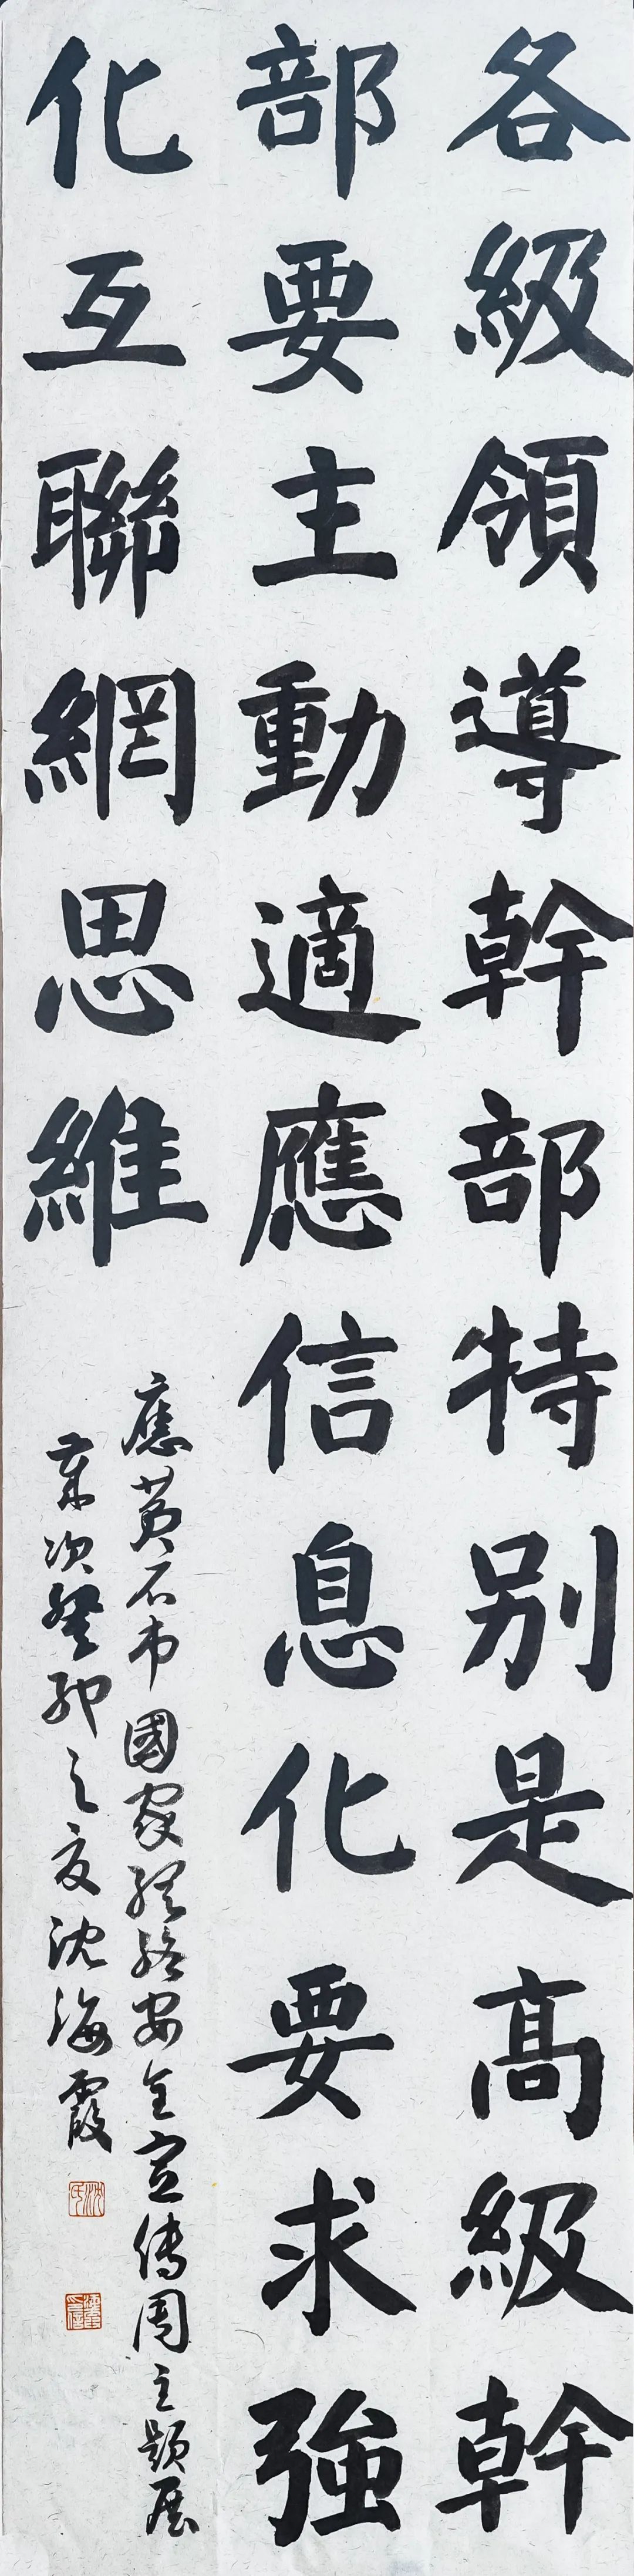 各級領導幹部特别是高級幹
部要主動適應信息化要求強
化互聯網思維
應黄石市國家網絡安全宣传周主題展
歲次癸卯之夏沈海霞
沈氏